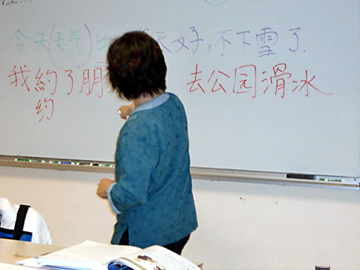 今天(天气)比 天好,不下雪了.
我約了朋 去公园滑冰
约